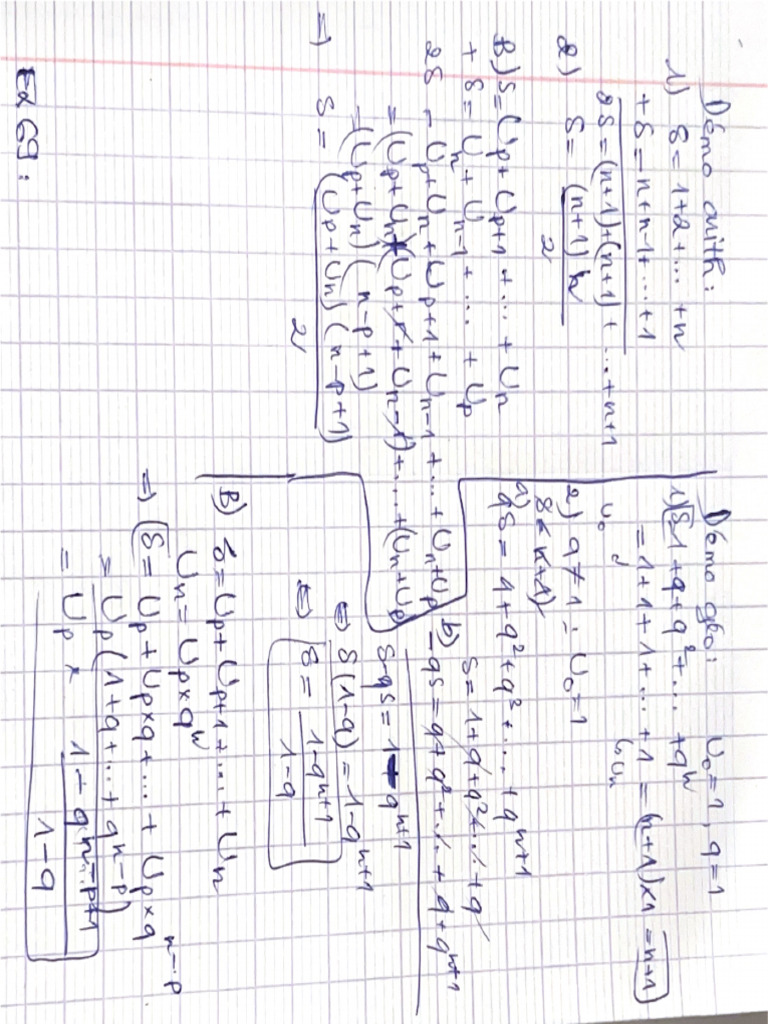 Démo arith:
1) S = 1+2+... +n
+ S = n+n-1+...+1
2S = (n+1)+(n+1)+...+n+1
2) S = (n+1)n / 2
B) S = Up + Up+1 +...+ Un
+ S = Un + Un-1 +...+ Up
2S = Up+Un + Up+1+Un-1 +...+ Un+Up
= (Up+Un)+(Up+r+Un-r)+...+(Un+Up)
= (Up+Un)(n-p+1)
=> S = (Up+Un)(n-p+1) / 2
Ex 69:
Démo géo: U0=1, q=1
1) S=1+q+q²+... +qⁿ
= 1+1+1+...+1 = (n+1)×1 = n+1
U0 Un
2) q≠1 : U0=1
S<(n+1)
a) qS = 1+q²+q³+...+qⁿ⁺¹
b) S = 1+q+q²+...+q
-qS = q+q²+...+q+qⁿ⁺¹
S-qS = 1-qⁿ⁺¹
<=> S(1-q) = 1-qⁿ⁺¹
<=> S = 1-qⁿ⁺¹ / 1-q
B) S = Up+Up+1+...+Un
Un = Up×qⁿ
=> S = Up+Up×q+...+Up×qⁿ⁻ᵖ
= Up(1+q+...+qⁿ⁻ᵖ)
= Up × 1-qⁿ⁻ᵖ⁺¹ / 1-q